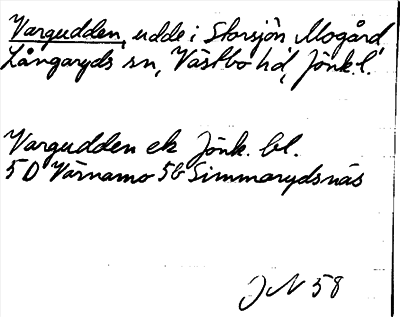 Vargudden, udde i Storsjön, Mogård,
Långaryds sn, Västbo hd, Jönk.l.
Vargudden ek Jönk. bl.
5D Värnamo 5b Simmarydsnäs
JN 58